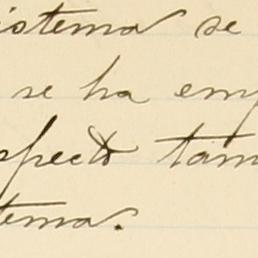 istema se
se ha emp
specto tam
tema.